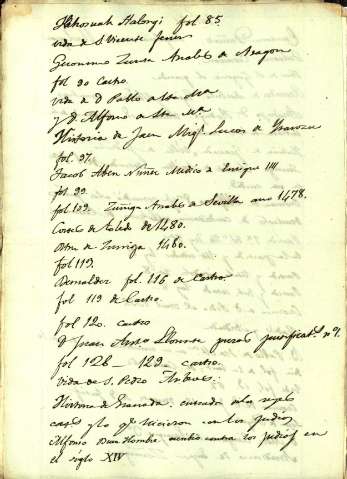 Jehosuah Halorqi fol 85
vida de S. Vicente Ferrer
Geronimo Zurita Anales de Aragon
fol 90 Castro
vida de D. Pablo a Sta Ma
y D. Alfonso a Sta Ma
Historia de Jaen Migl Lucas de Yranzu
fol. 97.
Jacob Aben Nuñez Medico de Enrique IIII
fol 99.
fol 109. Zuñiga Anales de Sevilla ano 1478.
Cortes de toledo de 1480.
de Zurriga 1480.
fol 119.
Bernaldez fol. 116 de Castro.
fol 119 de Castro
fol 120. castro
D Juan Anto Llorente purificat. nº 1.
fol 126 - 129 - castro.
vida de S. Pedro Arbues.
Historia de Granada. cuando los reyes
cat. y lo q. hicieron con los judios
Alfonso Buen Hombre escribio contra los judios en
el siglo XIV